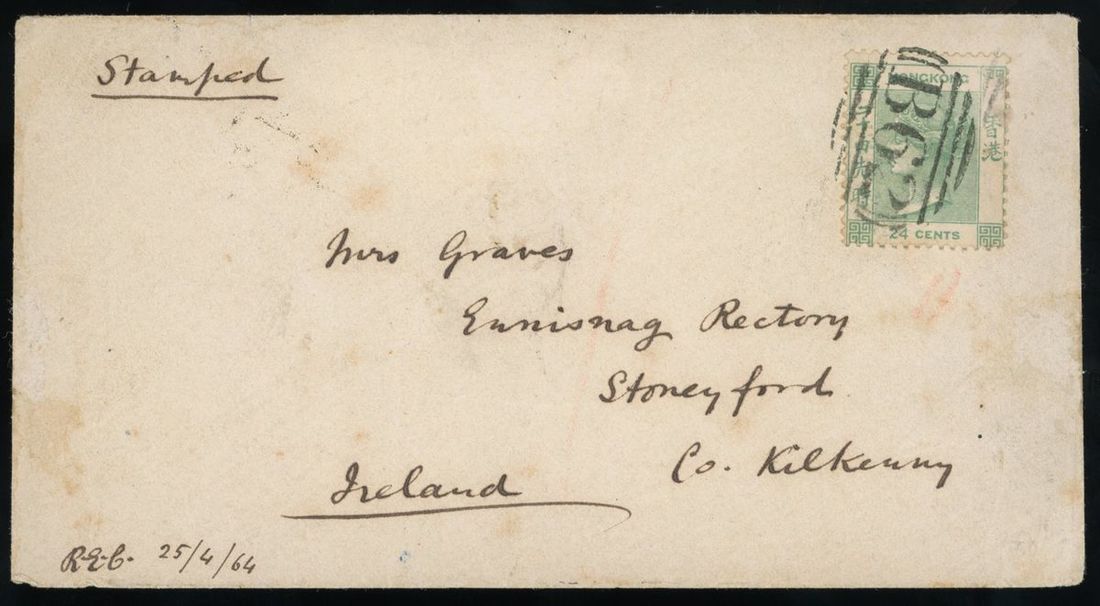 Stamped
HONGKONG
B62
香港
24 CENTS
Mrs Graves
Ennisnag Rectory
Stoneyford
Co. Kilkenny
Ireland
R.E.C. 25/4/64